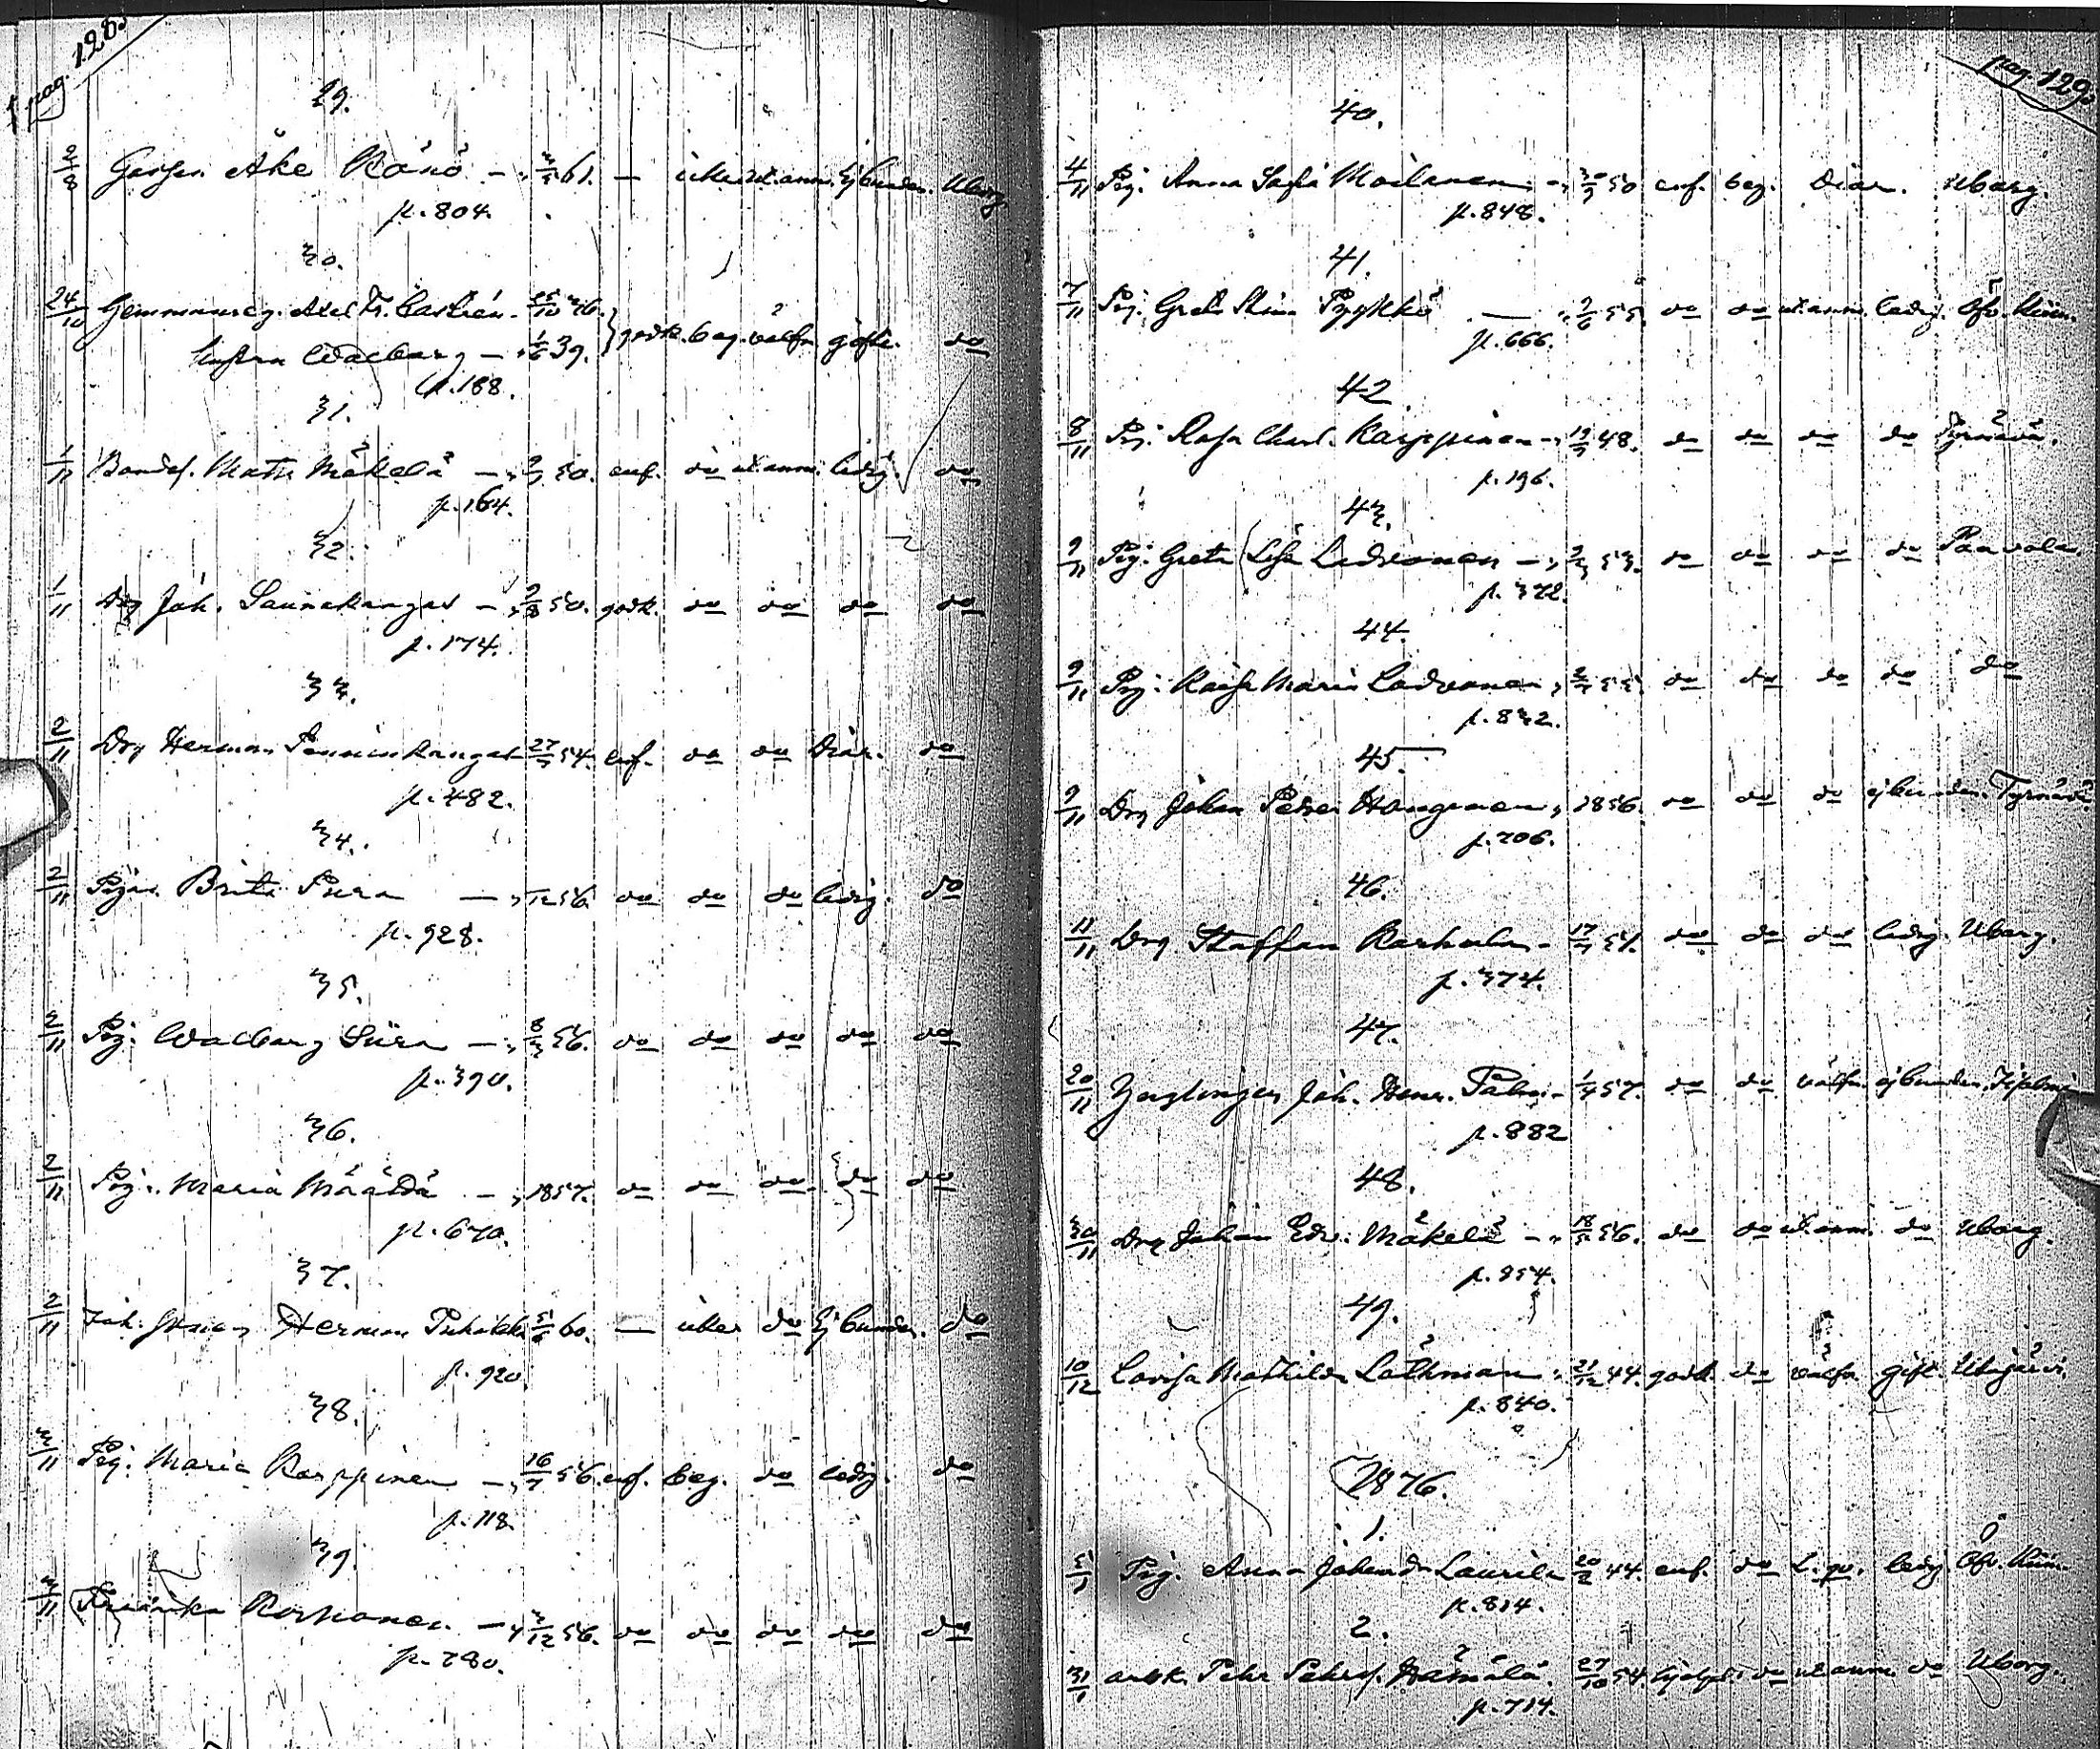 pag. 128.
29.
2/8 Gossen Åke Rönö — 61. — icke ut. ann. Ej bunden. Uborg
p. 804.
30.
24/10 Axel Fr. Castrén 25/10 36. } godk. beg. välfr. gifte. do
Hustrun Walborg — 1/6 39.
p. 188.
31.
1/11 Bondes. Matts Mäkelä — 50. enf. do ut. anm. ledig. do
p. 164.
32.
1/11 Drg Joh. Saunakangas — 9/8 50. godk. do do do do
p. 174.
33.
2/11 Drg Herman 27/7 54. enf. do do Diar. do
p. 482.
34.
2/11 Pigan Brita Pura — /12 56 do do do ledig. do
p. 928.
35.
2/11 Pig. Walborg Siira — 8/3 56. do do do do do
p. 390.
36.
2/11 Pig. Maria Määttä — 1857. do do do do do
p. 670.
37.
2/11 Joh. Herman 60. — icke do Ej bunden. do
p. 920
38.
3/11 Pig. Maria Karppinen — 16/7 56. enf. beg. do ledig. do
p. 118.
39.
3/11 Korhonen — 3/12 56. do do do do do
p. 780.
pag. 129.
40.
4/11 Pig. Anna Sofia Moilanen — 50 enf. beg. Diar. Uborg.
p. 848.
41.
7/11 Pig. Greta Stina Pyykkö — 2/6 55 do do ut. anm. ledig. Öfv. Kiim.
p. 666.
42
8/11 Pig. Karppinen — 48. do do do do Tyrnävä.
p. 196.
43.
9/11 Pig. Greta Lisa Ledvonen — 53. do do do do Paavola
p. 372.
44.
9/11 Pig. Kaisa Maria Ladvonen 55 do do do do do
p. 832.
45.
9/11 Drg Johan Peter 1856. do do do ej bunden. Tyrnävä
p. 206.
46.
11/11 Drg Staffan Karhula — 17/7 51. do do do ledig. Uborg.
p. 374.
47.
20/11 Ynglingen Joh. Henr. — 1/4 57. do do välfr. ej bunden.
p. 882
48.
30/11 Drg Johan Edv. Mäkelä — 18/5 56. do do ut. anm. do Uborg.
p. 854.
49.
10/12 Lovisa Mathilda Lathman 21/12 44. godk. do välfr. gift.
p. 840.
1876.
1.
5/1 Pig. Anna Johanna Laurila 20/2 44. enf. do L. qv. ledig. Öfv. Kiim.
p. 814.
2.
31/1 arbk. Pehr Pehrs. Hämälä. 27/10 54. hjelpl. do ut anm. do Uborg.
p. 714.